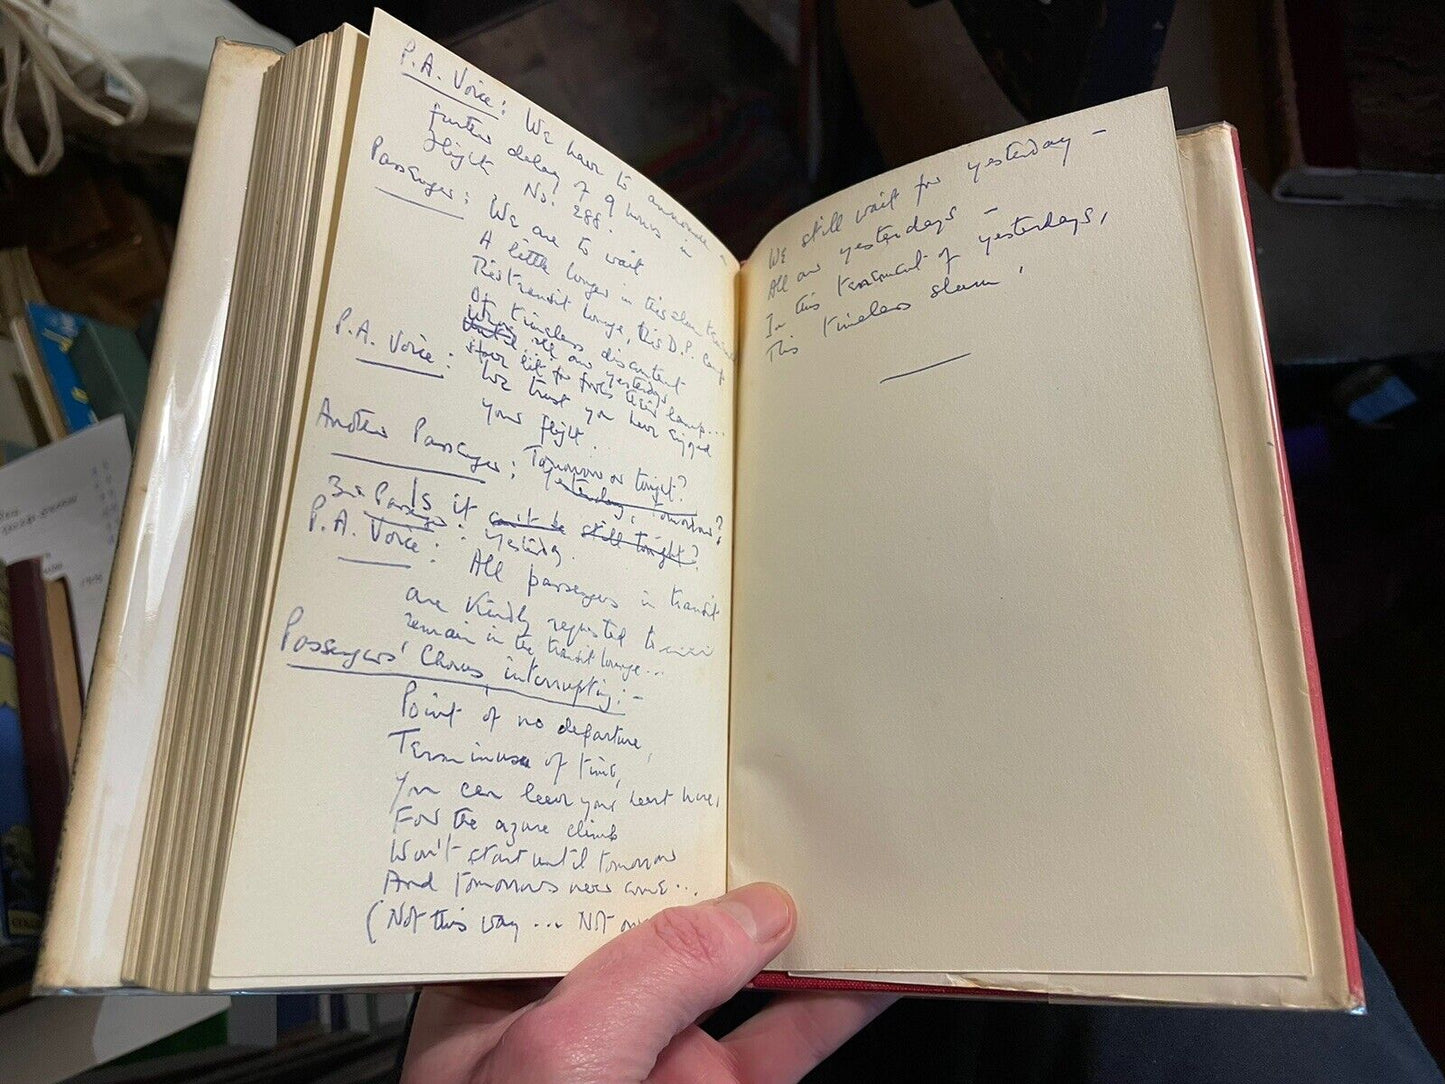 P.A. Voice: We have to announce a
further delay of 9 hours in
flight No: 288.
Passenger: We are to wait
A little longer in this slum
This transit lounge, this D.P. Camp
Of timeless discontent
all our yesterdays
like for
P.A. Voice: We trust you have enjoyed
your flight.
Another Passenger: Tomorrow or tonight?
yesterday, tomorrow?
Is it can it be still tonight?
3rd Passenger: Yesterday.
P.A. Voice: All passengers in transit
are kindly requested to
remain in the transit lounge...
Passengers' Chorus, interrupting:-
Point of no departure,
Terminus of time,
You can leave your heart here,
For the azure climb
Won't start until tomorrow
And tomorrows never come...
(Not this way... Not
We still wait for yesterday -
All our yesterdays -
In this tenement of yesterdays,
This timeless slum!